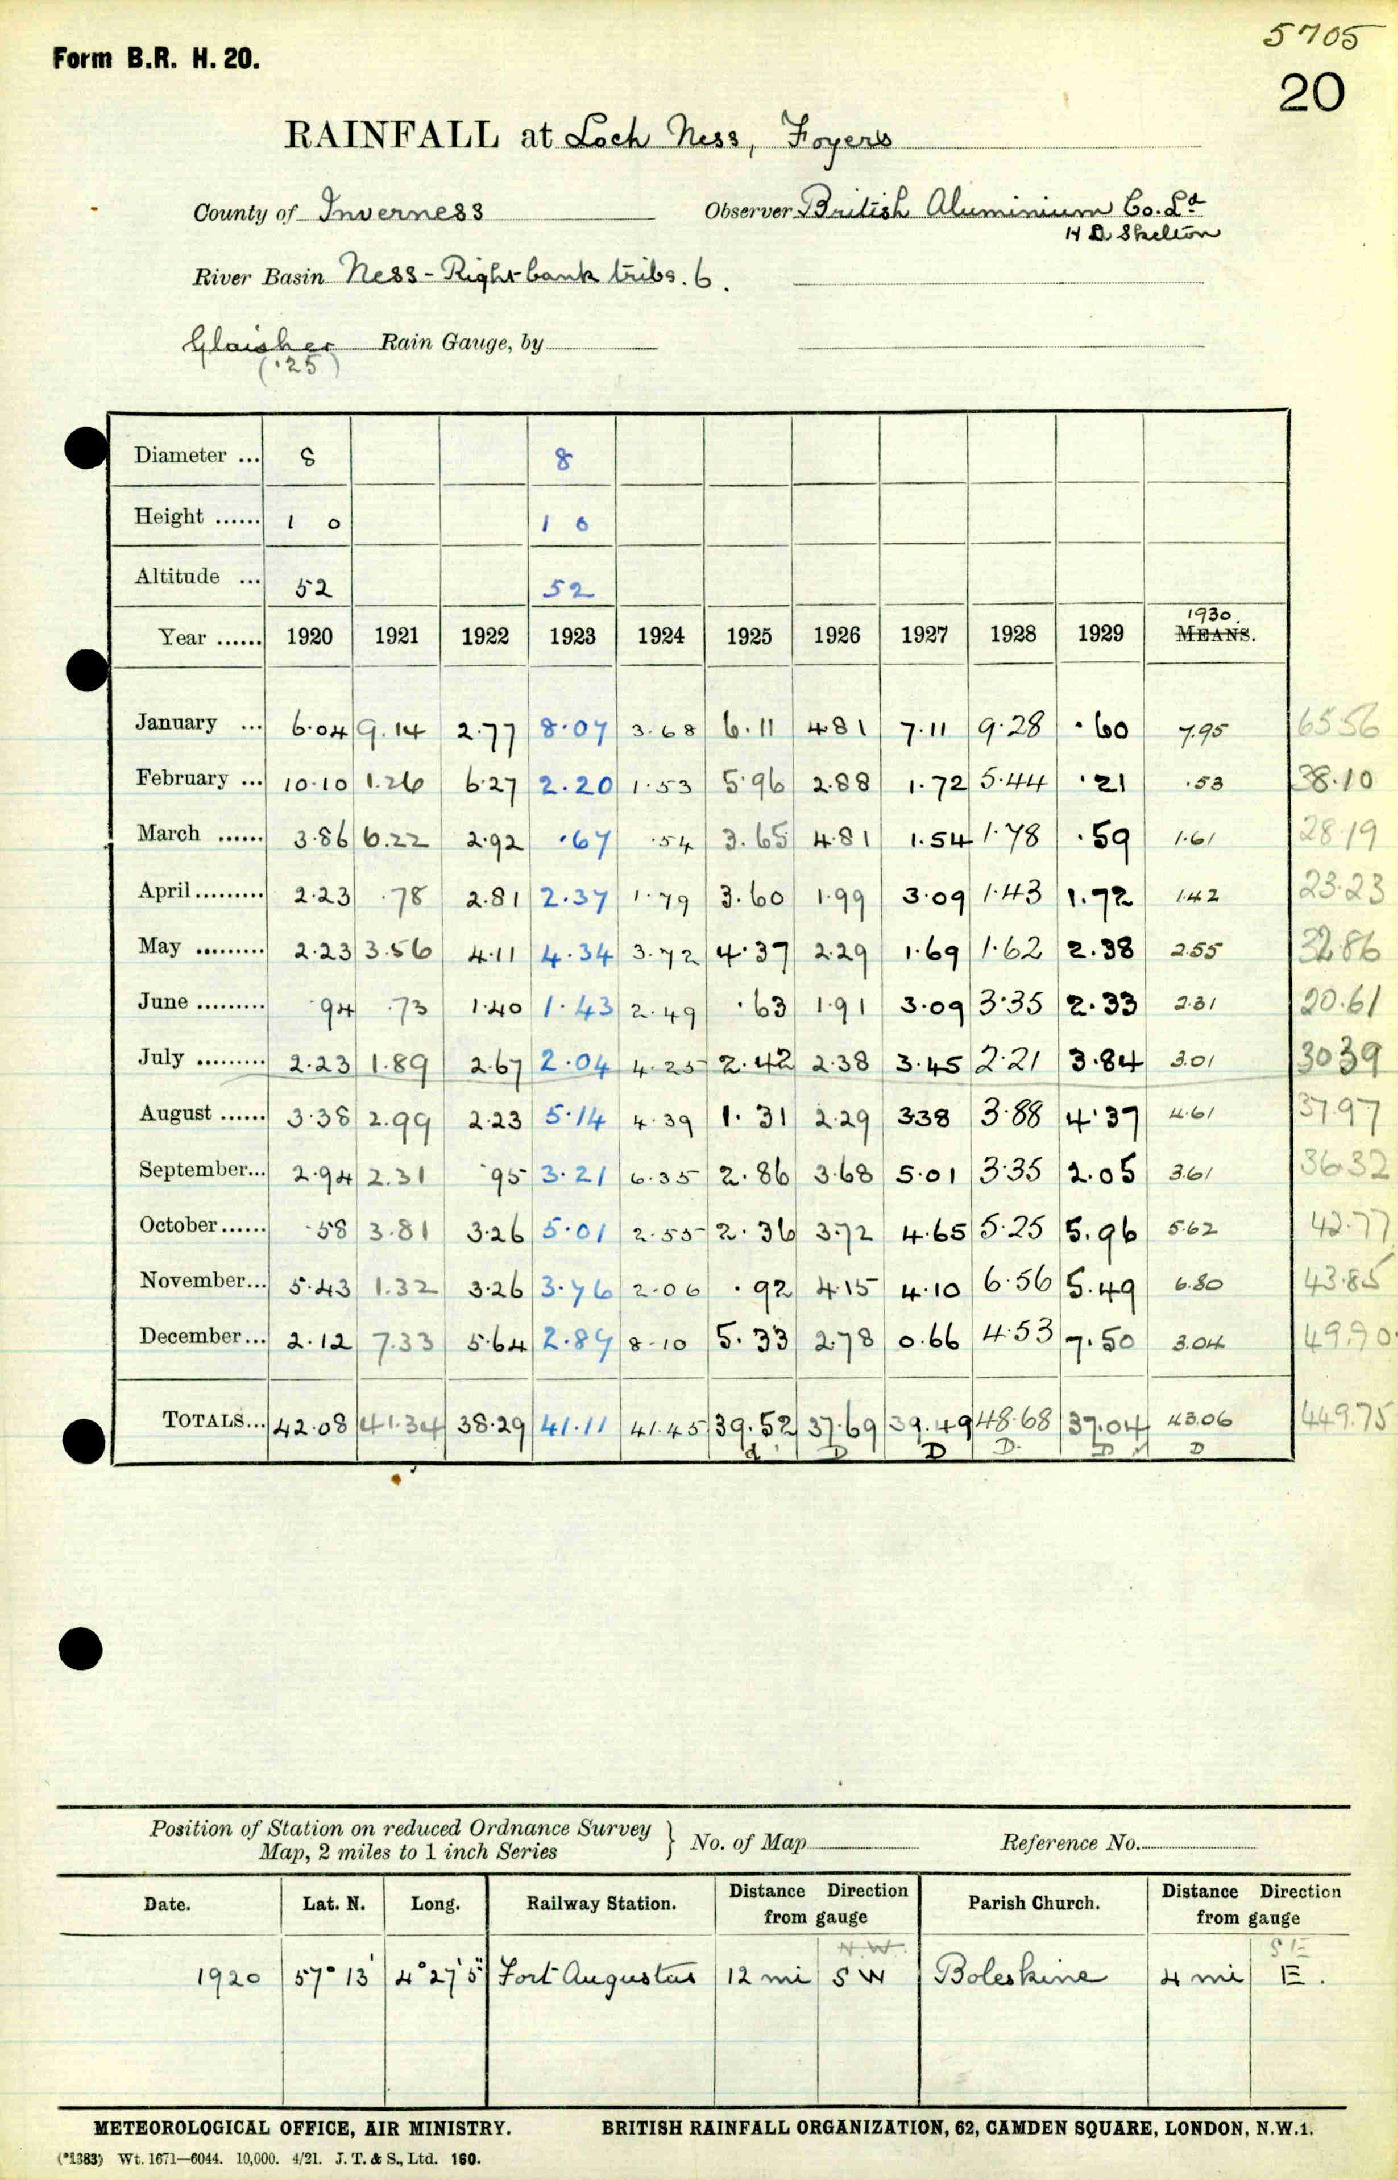 5705
Form B.R. H. 20.
20
RAINFALL at Loch Ness, Foyers
County of Inverness Observer British Aluminium Co. Ld
H D Skelton
River Basin Ness - Right bank tribs. 6.
Glaisher Rain Gauge, by
(.25)
Diameter ... 8 8
Height ...... 1 0 1 0
Altitude ... 52 52
1930.
Year ...... 1920 1921 1922 1923 1924 1925 1926 1927 1928 1929 MEANS.
January ... 6.04 9.14 2.77 8.07 3.68 6.11 4.81 7.11 9.28 .60 7.95 65.56
February ... 10.10 1.26 6.27 2.20 1.53 5.96 2.88 1.72 5.44 .21 .53 38.10
March ...... 3.86 6.22 2.92 .67 .54 3.65 4.81 1.54 1.78 .59 1.61 28.19
April......... 2.23 .78 2.81 2.37 1.79 3.60 1.99 3.09 1.43 1.72 1.42 23.23
May ......... 2.23 3.56 4.11 4.34 3.72 4.37 2.29 1.69 1.62 2.38 2.55 32.86
June ......... .94 .73 1.40 1.43 2.49 .63 1.91 3.09 3.35 2.33 2.31 20.61
July ......... 2.23 1.89 2.67 2.04 4.25 2.42 2.38 3.45 2.21 3.84 3.01 30.39
August ...... 3.38 2.99 2.23 5.14 4.39 1.31 2.29 3.38 3.88 4.37 4.61 37.97
September... 2.94 2.31 .95 3.21 6.35 2.86 3.68 5.01 3.35 2.05 3.61 36.32
October...... .58 3.81 3.26 5.01 2.55 2.36 3.72 4.65 5.25 5.96 5.62 42.77
November... 5.43 1.32 3.26 3.76 2.06 .92 4.15 4.10 6.56 5.49 6.80 43.85
December... 2.12 7.33 5.64 2.87 8.10 5.33 2.78 0.66 4.53 7.50 3.04 49.90
TOTALS... 42.08 41.34 38.29 41.11 41.45 39.52 37.69 39.49 48.68 37.04 43.06 449.75
d D D D D D
Position of Station on reduced Ordnance Survey
Map, 2 miles to 1 inch Series } No. of Map Reference No.
Date. Lat. N. Long. Railway Station. Distance Direction from gauge Parish Church. Distance Direction from gauge
N.W. SE
1920 57° 13' 4° 27' 5" Fort Augustus 12 mi SW Boleskine 4 mi E.
METEOROLOGICAL OFFICE, AIR MINISTRY. BRITISH RAINFALL ORGANIZATION, 62, CAMDEN SQUARE, LONDON, N.W.1.
(*1383) Wt. 1671—6044. 10,000. 4/21. J. T. & S., Ltd. 160.